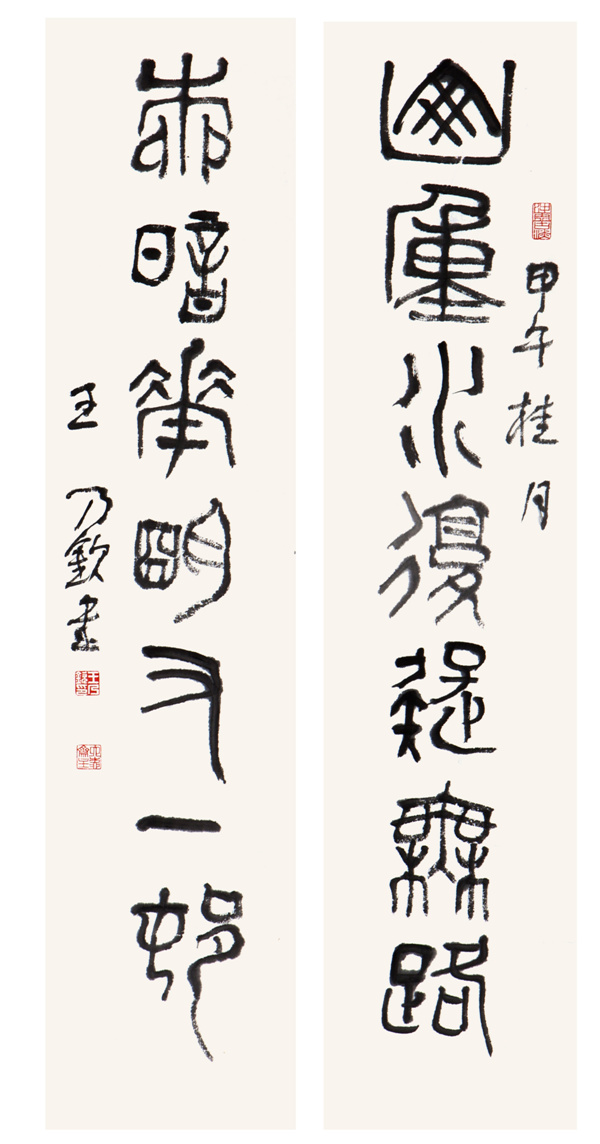 甲午桂月
山重水復疑無路
柳暗華明又一邨
王乃欽書